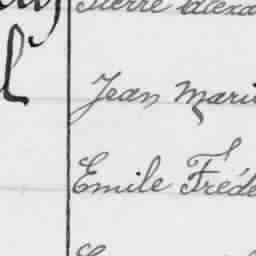 Pierre Alexa
Jean Mari
Emile Fréde